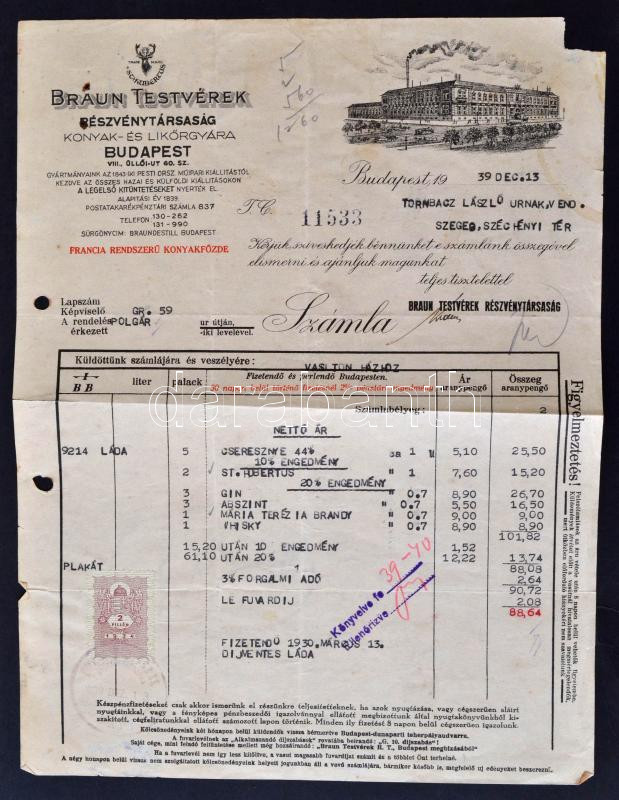 TRADE MARK
ST. HUBERTUS
BRAUN TESTVÉREK
RÉSZVÉNYTÁRSASÁG
KONYAK- ÉS LIKŐRGYÁRA
BUDAPEST
VIII., ÜLLŐI-UT 60. SZ.
GYÁRTMÁNYAINK AZ 1843-IKI PESTI ORSZ. MŰIPARI KIÁLLITÁSTÓL
KEZDVE AZ ÖSSZES HAZAI ÉS KÜLFÖLDI KIÁLLITÁSOKON
A LEGELSŐ KITÜNTETÉSEKET NYERTÉK EL.
ALAPITÁSI ÉV 1839.
POSTATAKARÉKPÉNZTÁRI SZÁMLA 837
TELEFON 130-262
131-990
SÜRGÖNYCIM: BRAUNDESTILL BUDAPEST
FRANCIA RENDSZERŰ KONYAKFŐZDE
5
560
Budapest, 19 39 DEC. 13
T. C. 11533
TORNBACZ LÁSZLÓ URNAK, VEND.
SZEGED, SZÉCHÉNYI TÉR
Kérjük, sziveskedjék bennünket e számlánk összegével
elismerni és ajánljuk magunkat
teljes tisztelettel
BRAUN TESTVÉREK RÉSZVÉNYTÁRSASÁG
Számla
Lapszám
Képviselő GR. 59
A rendelés POLGÁR ur útján,
érkezett -iki levelével.
Küldöttünk számlájára és veszélyére: VASUTON HÁZHOZ
I
B B
liter
palack
Fizetendő és perlendő Budapesten.
30 napon belül történő fizetésnél 2% pénztári engedmény
Ár
aranypengő
Összeg
aranypengő
Számlabélyeg: 2
NETTÓ ÁR
9214 LÁDA 5 CSERESZNYE 44% 1 5,10 25,50
10% ENGEDMÉNY
2 ST. HUBERTUS " 1 7,60 15,20
20% ENGEDMÉNY
3 GIN " 0.7 8,90 26,70
3 ABSZINT " 0.7 5.50 16,50
1 MÁRIA TERÉZIA BRANDY " 0.7 9,00 9,00
1 WHISKY " 0.7 8,90 8,90
101,82
15,20 UTÁN 10 ENGEDMÉNY 1,52
61,10 UTÁN 20% 12,22 13,74
PLAKÁT 88,08
3% FORGALMI ADÓ 2,64
90,72
LE FUVARDIJ 2,08
88,64
39-40
Könyvelve fo
Ellenőrizve
2
FILLÉR
FIZETENDŐ 1930. MÁRCIUS 13.
DIJMENTES LÁDA
Figyelmeztetés!
Készpénzfizetéseket csak akkor ismerünk el részünkre teljesitetteknek, ha azok nyugtázása, vagy cégszerűen aláirt
nyugtáinkkal, vagy a fényképes pénzbeszedői igazolvánnyal ellátott megbizottunk által nyugtakönyvünkből ki-
szakitott, cégfeliratunkkal ellátott számozott lapon történik. Minden ily fizetést 8 napon belül cégszerűen igazolunk.
Kölcsönedényeink két hónapon belül küldendők vissza bérmentve Budapest-dunaparti teherpályaudvarra.
A fuvarlevélnek az "Alkalmazandó dijszabások" rovatába beirandó: "G. 10. dijszabás"!
Saját cége, mint feladó feltüntetése mellett még hozzáirandó: "Braun Testvérek R. T., Budapest megbizásából"
Ha a fuvarlevél nem igy lesz kiállitva, a vasut magasabb fuvardijat számit és a többlet Önt terhelné.
A négy hónapon belül vissza nem szolgáltatott kölcsönedényeink helyett jogunkban áll a vevő számlájára, bármikor később is, megfelelő uj edényeket beszerezni.
darabanth